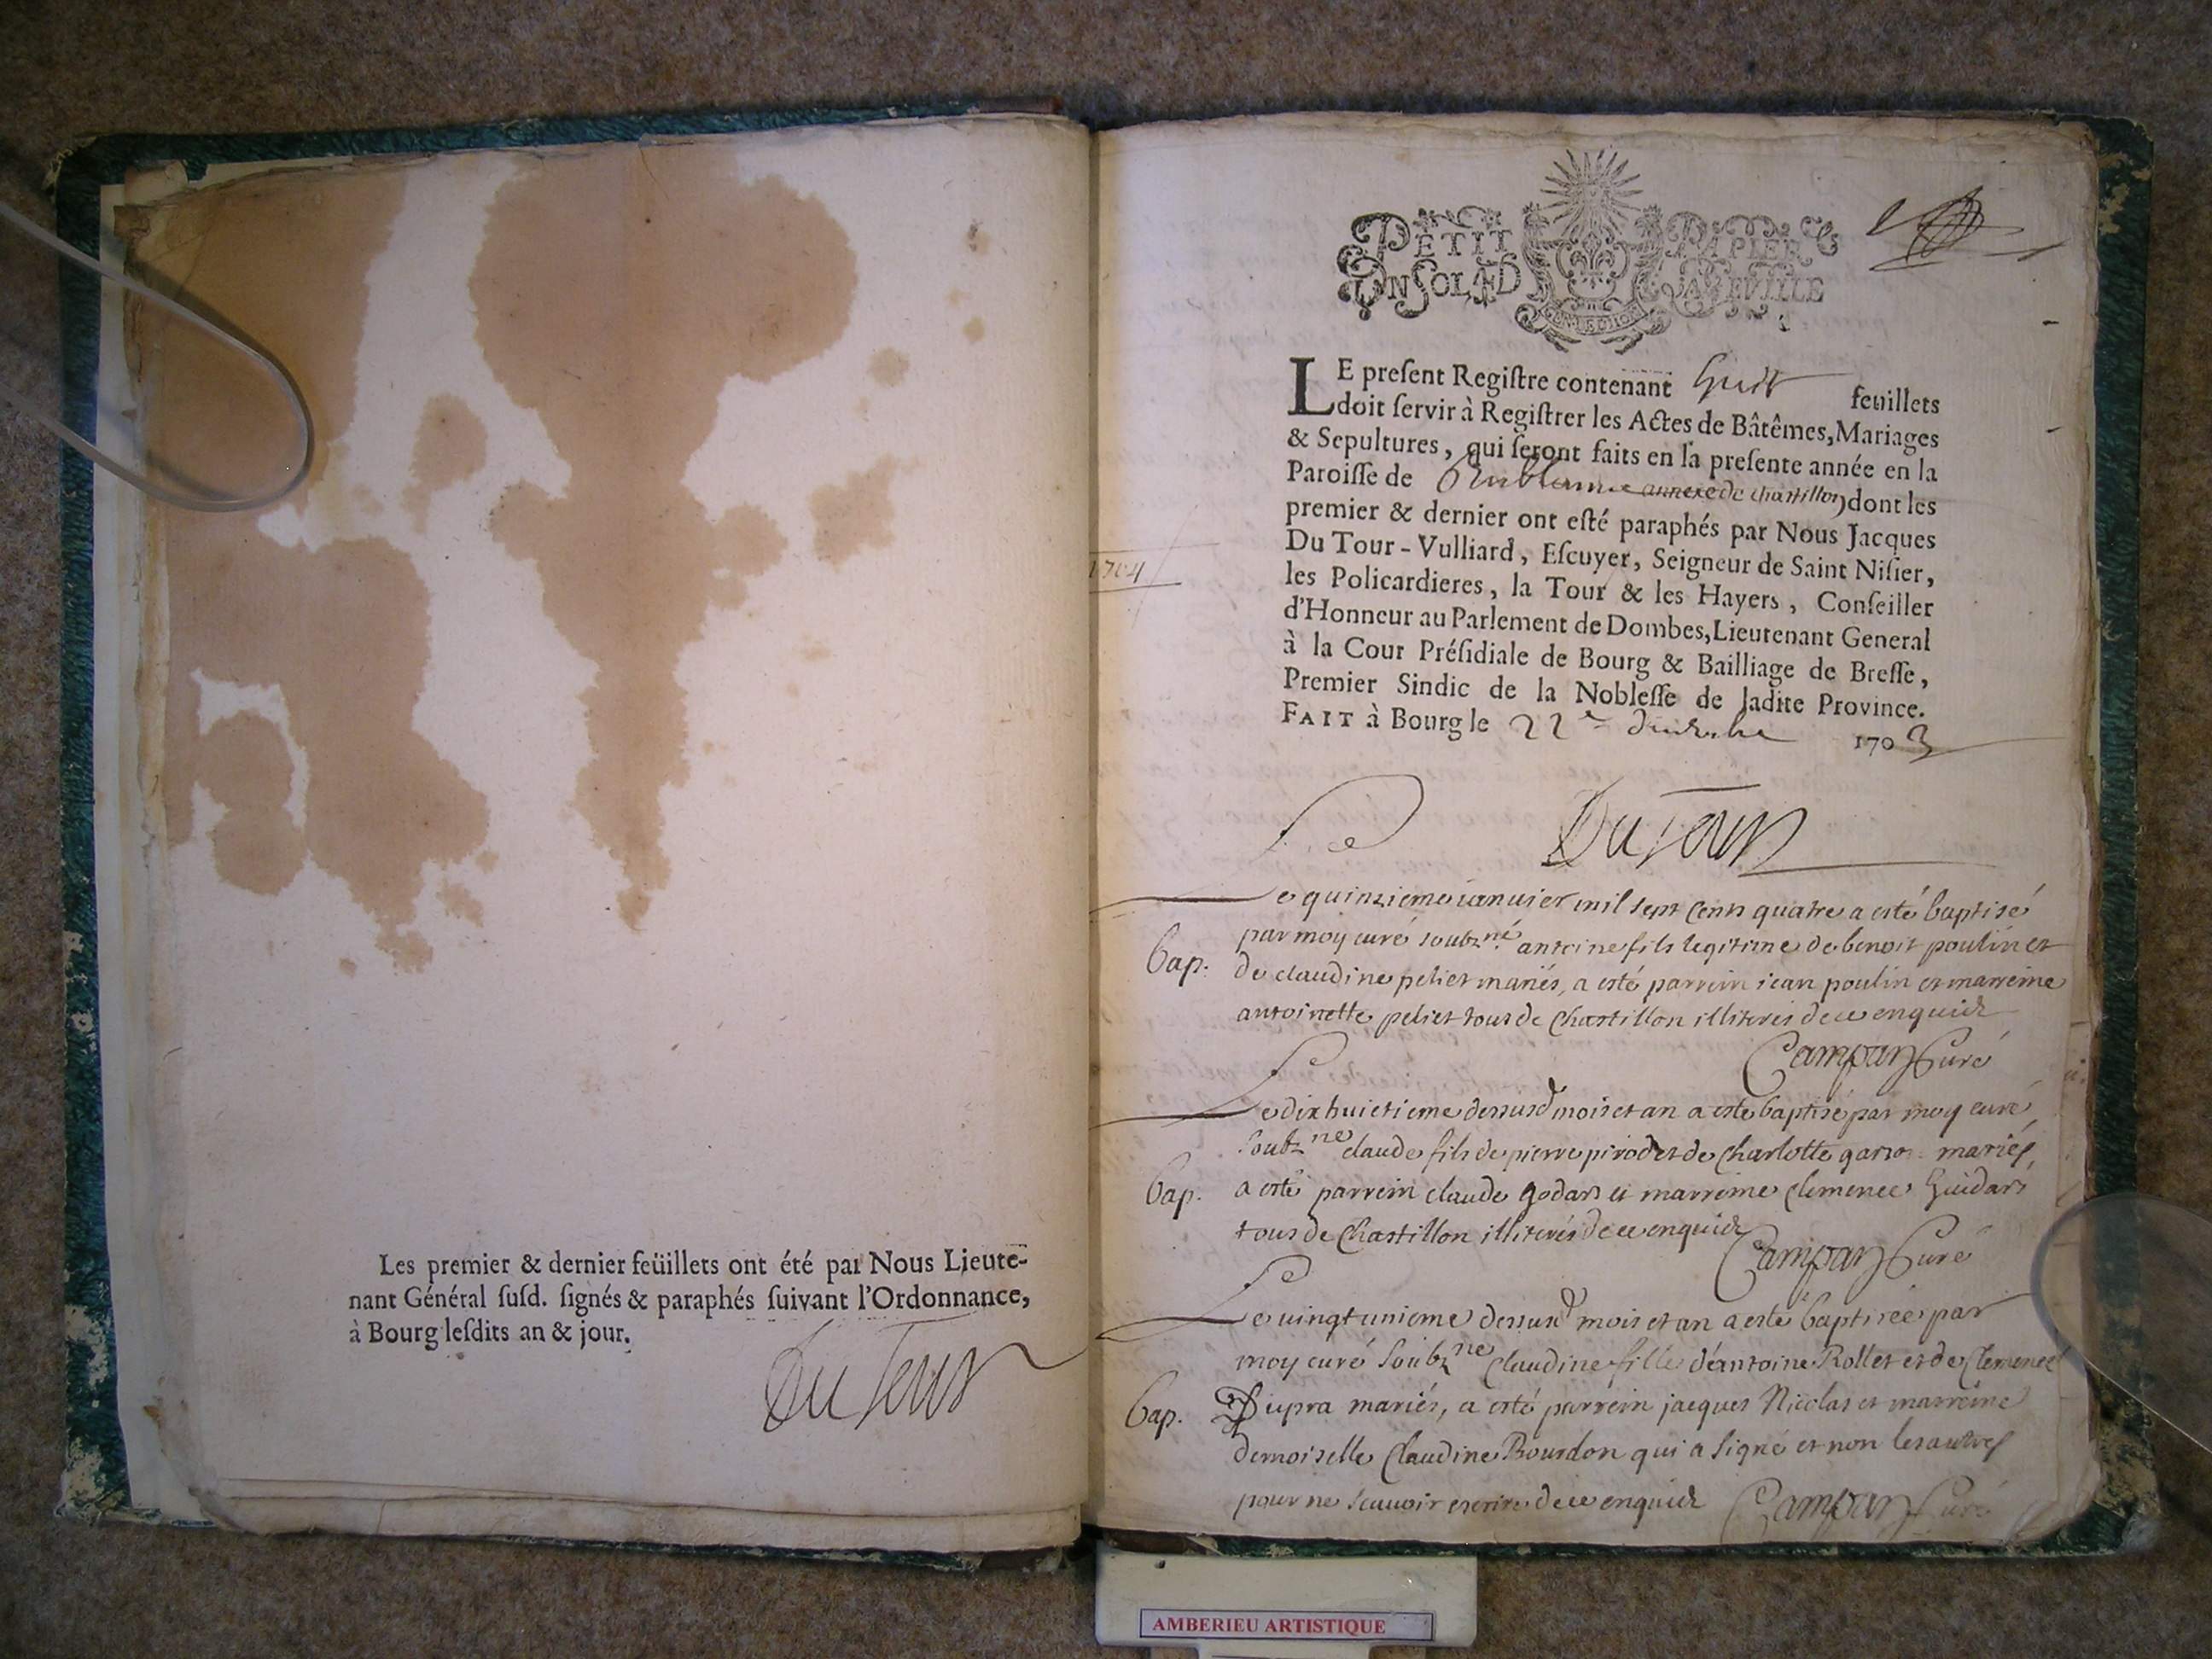 Les premier & dernier feüillets ont été par Nous Lieute-
nant Général ſuſd. ſignés & paraphés ſuivant l'Ordonnance,
à Bourg leſdits an & jour.
Du Tour
PETIT PAPIER
UN SOL 4 D LA FEVILLE
1704
LE preſent Regiſtre contenant huit feuillets
doit ſervir à Regiſtrer les Actes de Bâtêmes, Mariages
& Sepultures, qui ſeront faits en la preſente année en la
Paroiſſe de annexe de chastillon dont les
premier & dernier ont eſté paraphés par Nous Jacques
Du Tour-Vulliard, Eſcuyer, Seigneur de Saint Niſier,
les Policardieres, la Tour & les Hayers, Conſeiller
d'Honneur au Parlement de Dombes, Lieutenant General
à la Cour Préſidiale de Bourg & Bailliage de Breſſe,
Premier Sindic de la Nobleſſe de ladite Province.
FAIT à Bourg le 22e 1703
Du Tour
Le quinzieme ianuier mil sept cents quatre a esté baptisé
par moy curé soubzné antoine fils legitime de benoit poulin et
Bap. de claudine peliet mariés, a esté parrein iean poulin et marreine
antoinette peliet tous de Chastillon illiterés de ce enquis
Campan Curé
Le dix huictieme dessusd mois et an a esté baptisé par moy curé
soubzné claude fils de pierre pirodet de Charlotte mariés,
Bap. a esté parrein claude godars et marreine clemence Guidars
tous de Chastillon illiterés de ce enquis
Campan Curé
Le uingt unieme dessusd mois et an a esté baptisée par
moy curé soubzné Claudine fille d'antoine Rollet et de Clemence
Bap. Dupra mariés, a esté parrein jacques Nicolas et marreine
demoiselle Claudine Bourdon qui a signé et non les autres
pour ne scauoir escrire de ce enquis Campan Curé
AMBERIEU ARTISTIQUE